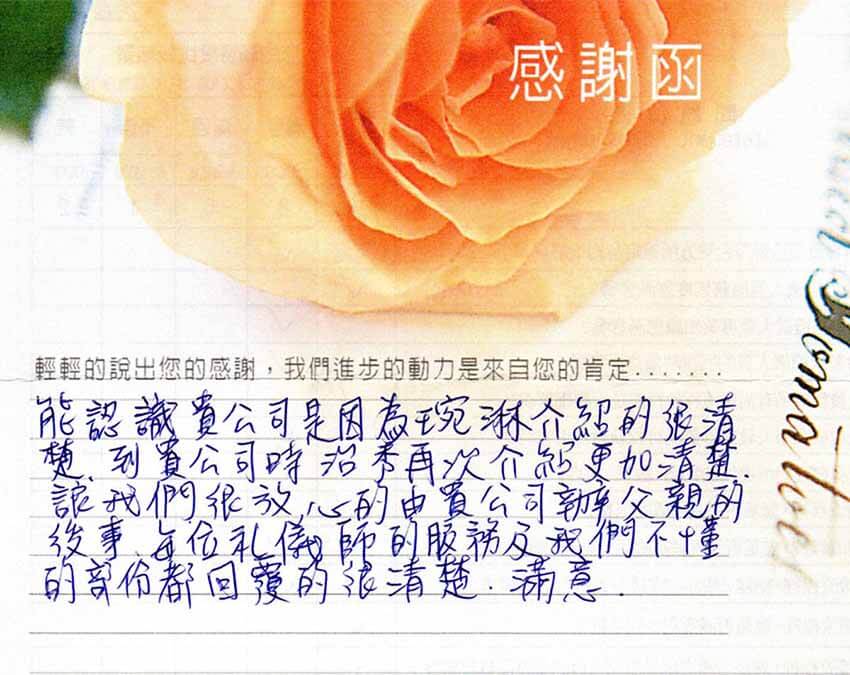 感謝函
輕輕的說出您的感謝，我們進步的動力是來自您的肯定.......
能認識貴公司是因為琬淋介紹的很清
楚.到貴公司時 沿秀再次介紹更加清楚.
讓我們很放心的由貴公司辦父親的
後事.每位礼儀師的服務及我們不懂
的部份都回覆的很清楚.滿意.